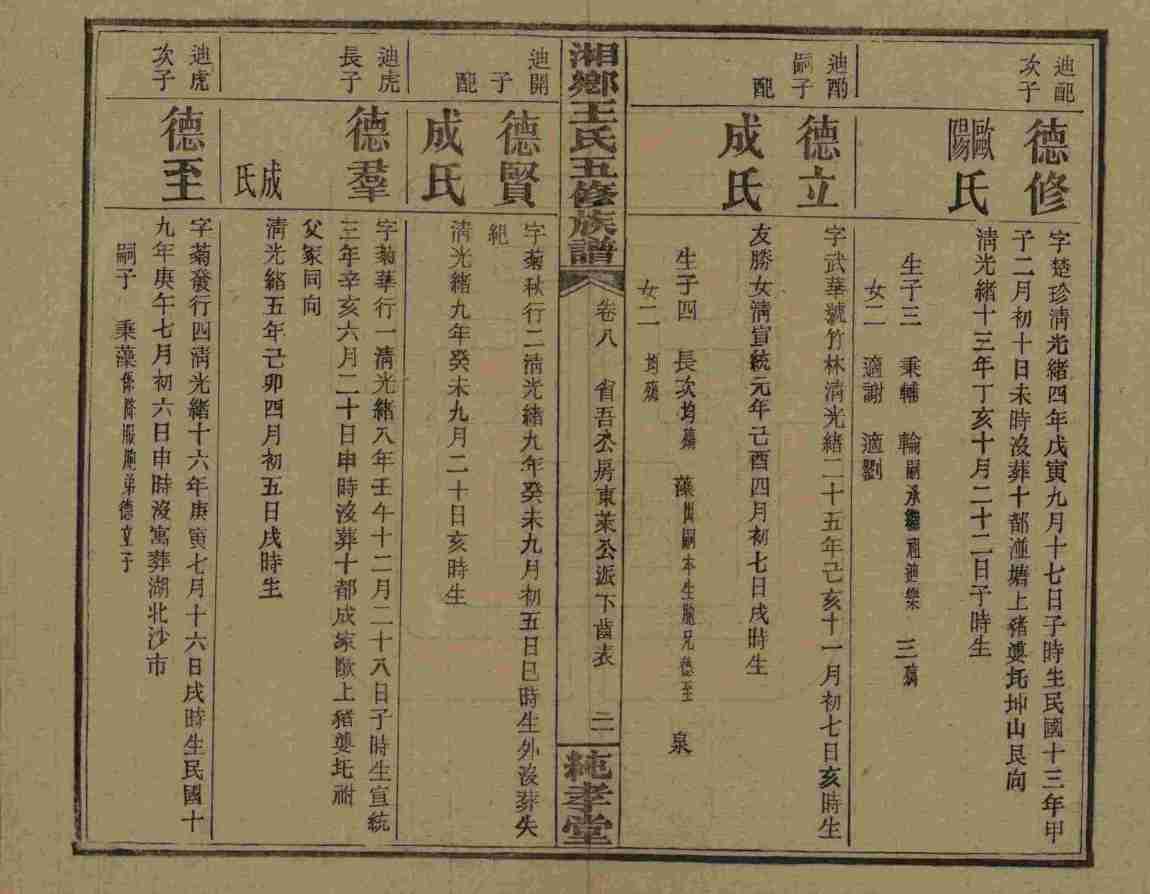 迪配次子
德修
字楚珍淸光緒四年戊寅九月十七日子時生民國十三年甲
子二月初十日未時沒葬十都滙塘上豬婆坵坤山艮向
歐陽氏
淸光緒十三年丁亥十月二十二日子時生
生子三 秉輔 輪嗣承繼祖迪樂 三殤
女二 適謝 適劉
迪酌嗣子
德立
字武華號竹林淸光緒二十五年己亥十一月初七日亥時生
配
成氏
友勝女淸宣統元年己酉四月初七日戌時生
生子四 長次均殤 藻出嗣本生胞兄德至 泉
女二 均殤
湘鄉王氏五修族譜
卷八 省吾公房東萊公派下齒表 二
純孝堂
迪開子
德賢
字菊秋行二淸光緒九年癸未九月初五日巳時生外沒葬失
紀
配
成氏
淸光緒九年癸未九月二十日亥時生
迪虎長子
德羣
字菊華行一淸光緒八年壬午十二月二十八日子時生宣統
三年辛亥六月二十日申時沒葬十都成家歐上豬婆坵祔
父冢同向
成氏
淸光緒五年己卯四月初五日戌時生
迪虎次子
德至
字菊發行四淸光緒十六年庚寅七月十六日戌時生民國十
九年庚午七月初六日申時沒寓葬湖北沙市
嗣子 秉藻係降服胞弟德立子